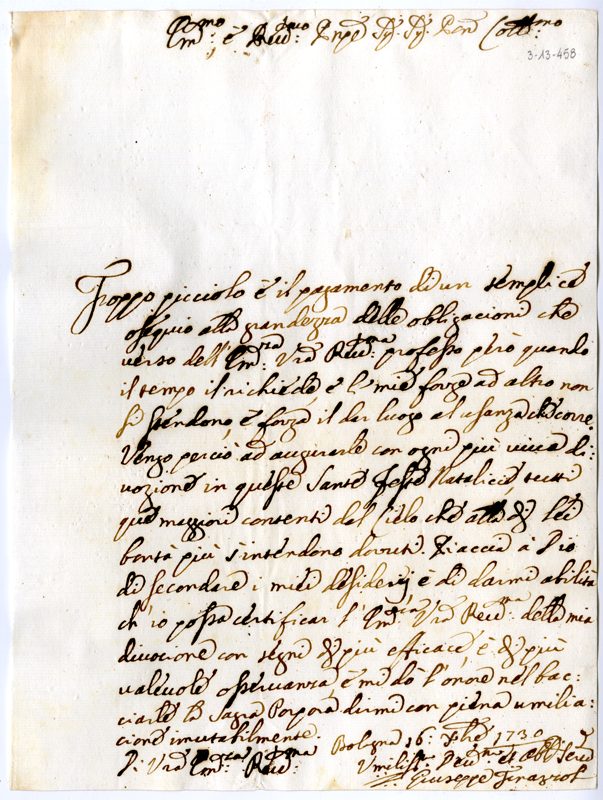 Em:mo e Reu:mo Pnpe Sig: Sig: Pron Coll:mo
3-13-458
Troppo picciolo è il pagamento di un semplice
ossequio alla grandezza delle obligationi che
verso dell' Em:za Vra Reu:ma professo però quando
il tempo il richiede è le mie forze ad altro non
si stendono, è forza il dar luogo al usanza che corre.
Vengo perciò ad augurarle con ogni più viva di:
uozione in queste Sante feste Natalicie tutti
que maggiori contenti dal Cielo che alla di lei
bontà più s'intendono dovuti. Piaccia à Dio
di secondare i miei desiderij è di darmi abilità
ch'io possa certificar l'Em:za Vra Reu:ma della mia
divocione con segni di più efficace, è di più
valevole osservanza, è mi dò l'onore nel bac:
ciarle la Sagra Porpora dirmi con piena umilia:
cione imutabilmente.
Bologna 16: Xbre 1730
Di Vra Em:za Reu:ma
Umiliss: Deu:mo et Obl: Serv
Giuseppe